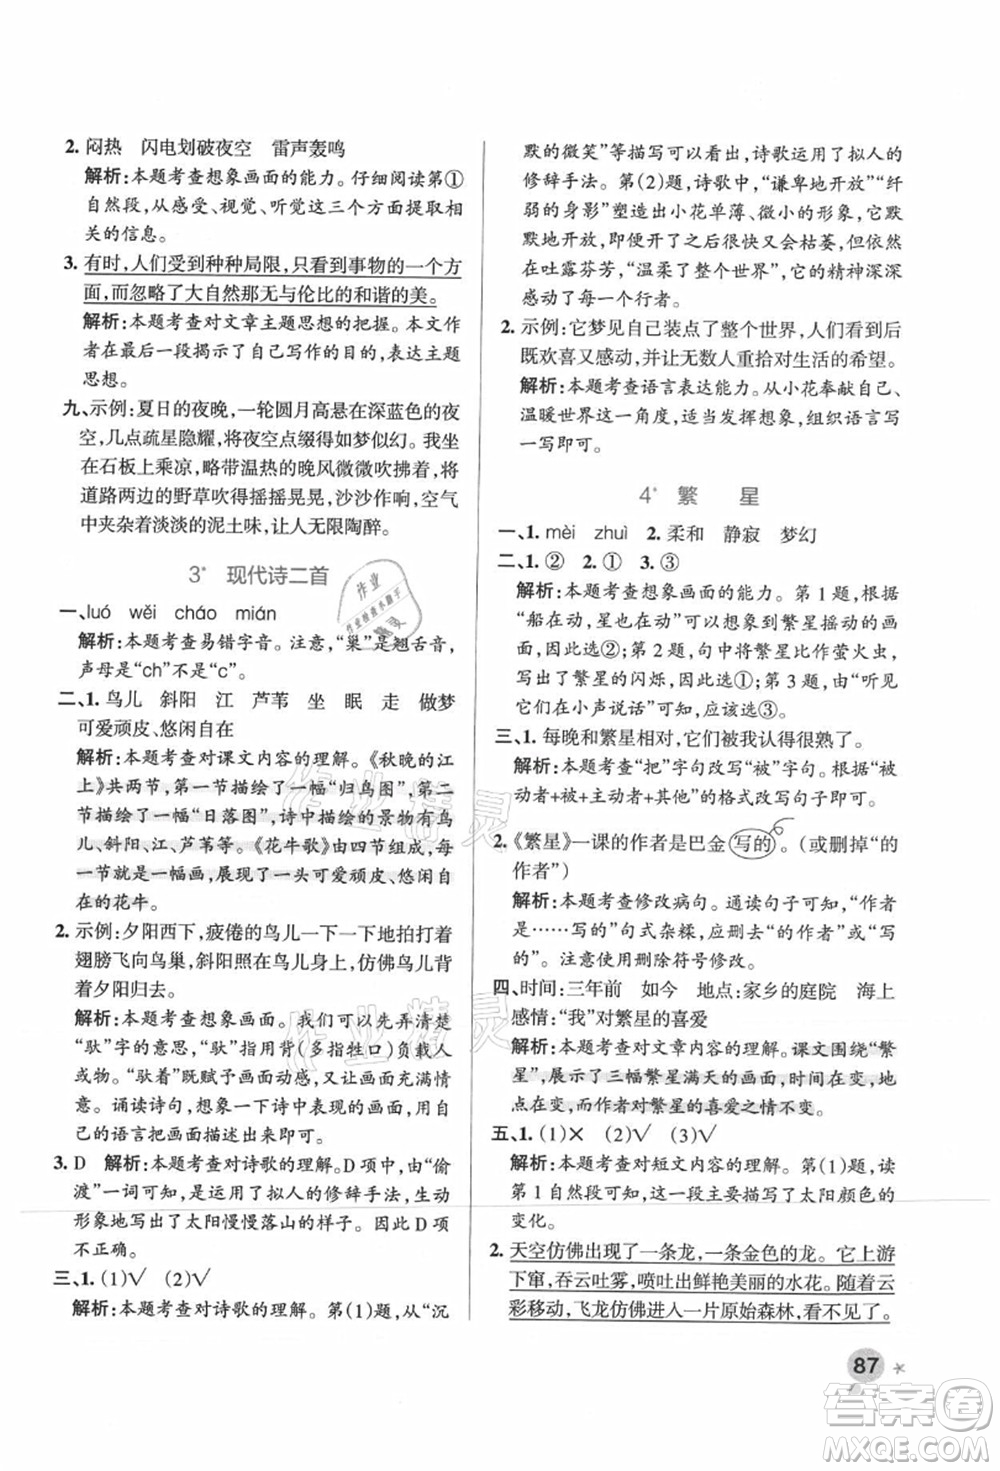 2. 闷热　闪电划破夜空　雷声轰鸣
解析:本题考查想象画面的能力。仔细阅读第①
自然段,从感受、视觉、听觉这三个方面提取相
关的信息。
3. 有时,人们受到种种局限,只看到事物的一个方
面,而忽略了大自然那无与伦比的和谐的美。
解析:本题考查对文章主题思想的把握。本文作
者在最后一段写出了自己写作的目的,表达主题
思想。
九、示例:夏日的夜晚,一轮圆月高悬在深蓝色的夜
空,几点疏星隐耀,将夜空点缀得如梦似幻。我坐
在石板上乘凉,略带温热的晚风微微吹拂着,将
道路两边的野草吹得摇摇晃晃,沙沙作响,空气
中夹杂着淡淡的泥土味,让人无限陶醉。
3* 现代诗二首
一、luó　wěi　cháo　mián
解析:本题考查易错字音。注意,“巢”是翘舌音,
声母是“ch”而不是“c”。
二、1. 鸟儿　斜阳　江　芦苇　坐　眠　走　做梦
可爱顽皮、悠闲自在
解析:本题考查对课文内容的理解。《秋晚的江
上》共两节,第一节描绘了一幅“归鸟图”,第二
节描绘了一幅“日落图”,诗中描绘的景物有鸟
儿、斜阳、江、芦苇等。《花牛歌》由四节组成,每
一节就是一幅画,展现了一头可爱顽皮、悠闲自在
的花牛。
2. 示例:夕阳西下,疲倦的鸟儿一下一下地拍打着
翅膀飞向鸟巢,斜阳照在鸟儿身上,仿佛鸟儿背
着夕阳归去。
解析:本题考查想象画面。同学们可以先弄清楚
“驮”字的意思,“驮”指用背(多指牲口)负载人
或物。“驮着”既赋予画面动感,又让人感受到画
面之美。诵读诗句,想象一下诗中表现的画面,用
自己的语言把画面描绘出来即可。
3. D　解析:本题考查对诗歌的理解。D项中,由“偷
渡”一词可知,是运用了拟人的修辞手法,生动
形象地写出了太阳慢慢落山的样子。因此D项
不正确。
三、1. (1)√　(2)√
解析:本题考查对诗歌的理解。第(1)题,从“沉
默的微笑”等描写可以看出,诗歌运用了拟人的
修辞手法。第(2)题,诗歌中,“谦卑地开放”“纤
弱的身影”塑造出小花单薄、微小的形象,它默
默地开放,即使开了之后两天就会枯萎,依然
在吐露芬芳,“温柔了整个世界”,它的精神深深
感动了每一个行者。
2. 示例:它梦见自己装点了整个世界,人们看到后
既欢喜又感动,并让无数人重拾对生活的希望。
解析:本题考查语言表达能力。从小花奉献自己、
温暖世界这一角度,适当发挥想象,组织语言写
一写即可。
4* 繁　星
一、1. mèi　zhuì　2. 柔和　静寂　梦幻
二、1. ②　2. ①　3. ③
解析:本题考查想象画面的能力。第1题,根据
“船在动,星也在动”,可知想象到了繁星摇动的画
面,因此选②;第2题,句中将繁星比作萤火虫,
写出了繁星的闪烁,因此选①;第3题,由“听见
它们在小声说话”可知,应该选③。
三、1. 每晚和繁星相对,它们被我认得很熟了。
解析:本题考查“把”字句改写“被”字句。按照“被
动者+被+主动者+其他”的格式改写句子即可。
2. 《繁星》一课的作者是巴金写的。(或删掉“的
作者”)
解析:本题考查修改病句。通读句子可知,“作者
是……写的”句式杂糅,应删去“的作者”或“写
的”。注意使用删除符号修改。
四、时间:三年前　如今　地点:家乡的庭院　海上
感情:“我”对繁星的喜爱
解析:本题考查对文章内容的理解。课文围绕“繁
星”,展示了三幅繁星满天的画面,时间在变,地
点在变,而作者对繁星的喜爱之情不变。
五、1. (1)×　(2)√　(3)√
解析:本题考查对短文内容的理解。第(1)题,读
第1自然段可知,这里描写出了太阳颜色的
变化。
2. 天空仿佛出现了一条龙,一条金色的龙。它上游
下窜,吞云吐雾,喷吐出鲜艳美丽的水花。随着云
彩移动,飞龙仿佛进入一片原始森林,看不见了。
87
作业精灵
作业精灵
作业
作业检查小助手
精灵
答案圈
MXQE.COM